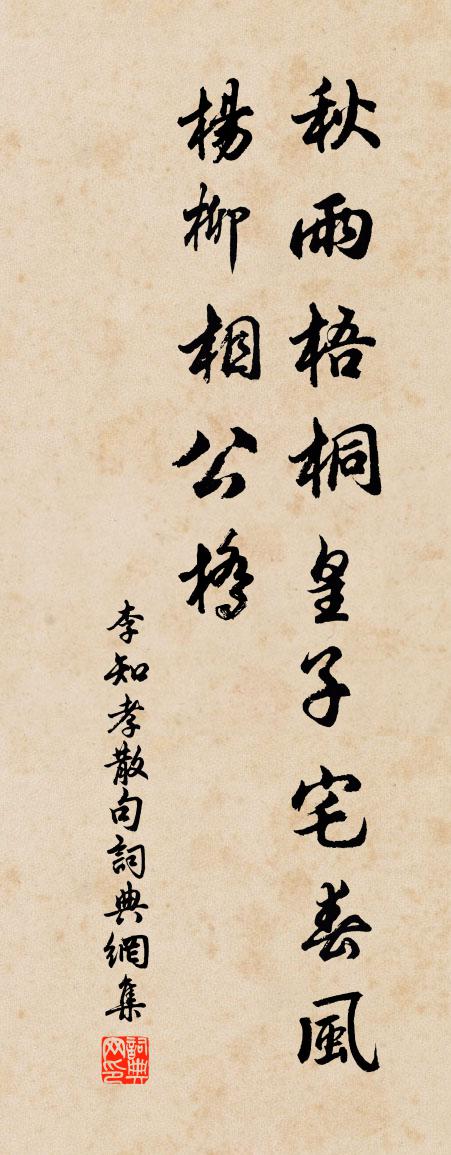 秋雨梧桐皇子宅春風
楊柳相公橋
李知孝散句詞典網集
詞典网印